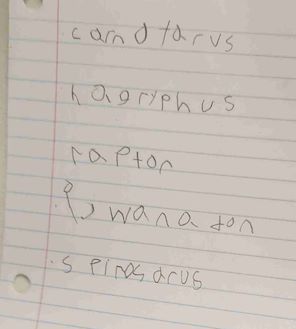 carnotarus
hagryphus
rapton
iguanadon
spinosarus